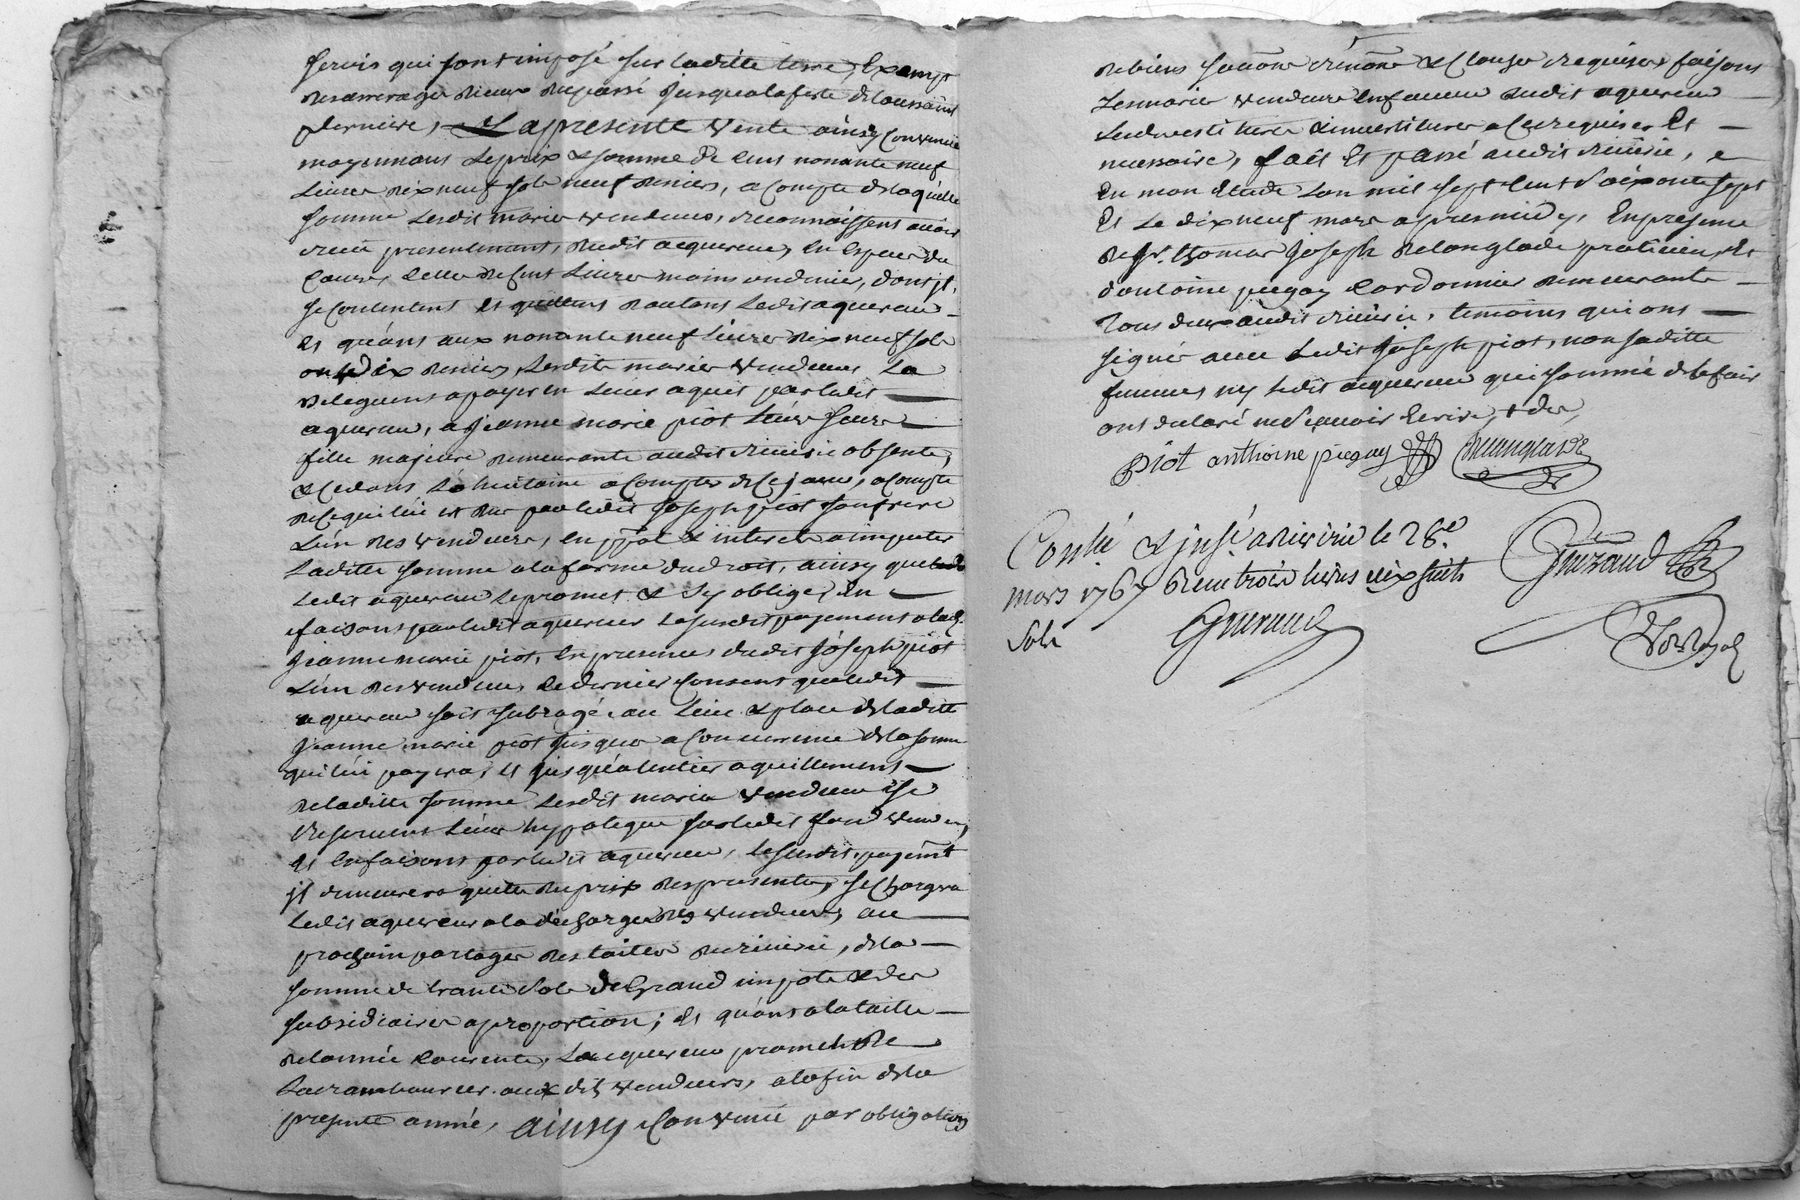 servis qui sont imposé sur laditte terre, Exempt
des arrerages d'iceux du passé jusqua la feste de toussaint
derniere, La presente vente ainsy convenue
moyennant le prix & somme de cent nonante neuf
Livres dix neuf sols neuf deniers, a compte de laquelle
somme lesdit mariés vendeurs, reconnaissent avoir
receu presentement, dudit aquereur, en espece du
cours, celle de cent Livres moins un denier, dont jls
se contentent et quittent d'autant ledit aquereur
Et quant aux nonante neuf Livres dix neuf sols
dix deniers, lesdits mariés vendeurs La
deleguent a payer en Leur aquit par ledit
aquereur, a Jeanne marie piot Leur sœur
fille majeure demeurante audit Riverie absente,
& ce dans a compter de ce jour, a compte
de ce qui lui est du par ledit Joseph piot son frere
L'un des vendeurs, en ppal & interets a imputer
Laditte somme a la forme du droit, ainsy que
Ledit aquereur le promet & s'y oblige, En
faisant par ledit aquereur le susdit payement a lad.
Jeanne marie piot, en presence dudit Joseph piot
L'un des vendeurs, ce dernier consent que ledit
aquereur soit subrogé au Lieu & place de laditte
Jeanne marie piot jusqua a concurrence de la somme
qui lui payera, et jusqu'a l'entier aquittement
de laditte somme lesdit mariés vendeurs se
reservent Leur hypoteque sur ledit fond vendu,
Et En faisant par ledit aquereur, le susdit payemt
jl demeurera quitte du prix des presentes, se chargera
Ledit aquereur a la decharge des vendeurs, au
prochain partage des tailles de Riverie, de la
somme de trante sols de Grand impots & des
subsidiaires a proportion; Et quant a la taille
de l'année courente, Lacquereur promet de
la rambourcer aux dits vendeurs, a la fin de la
presente année, ainsy Convenu par obligation
de biens soumon renon & Clauses requises faisant
Lesdit mariés vendeurs En faveur dudit aquereur
Les devestitures & investitures a ce requises Et
necessaire, fait Et passé audit Riverie,
En mon Etude L'an mil sept cent soixante sept
Et Le dix neuf mars apres midy, En presence
de sr. thomas Joseph delanglade praticien, Et
d'antoine piegay Cordonnier demeurants
tous deux audit Riverie, temoins qui ont
signé avec Ledit Joseph piot, non saditte
femme ny ledit aquereur qui sommé de le faire
ont declaré ne sçavoir Ecrire, & de,
piot anthoine piegay Delanglade
Conlé & insé. a Riverie le 28e.
mars 1767 Reçu trois livres dix huit
sols
Guiraud
Guiraud